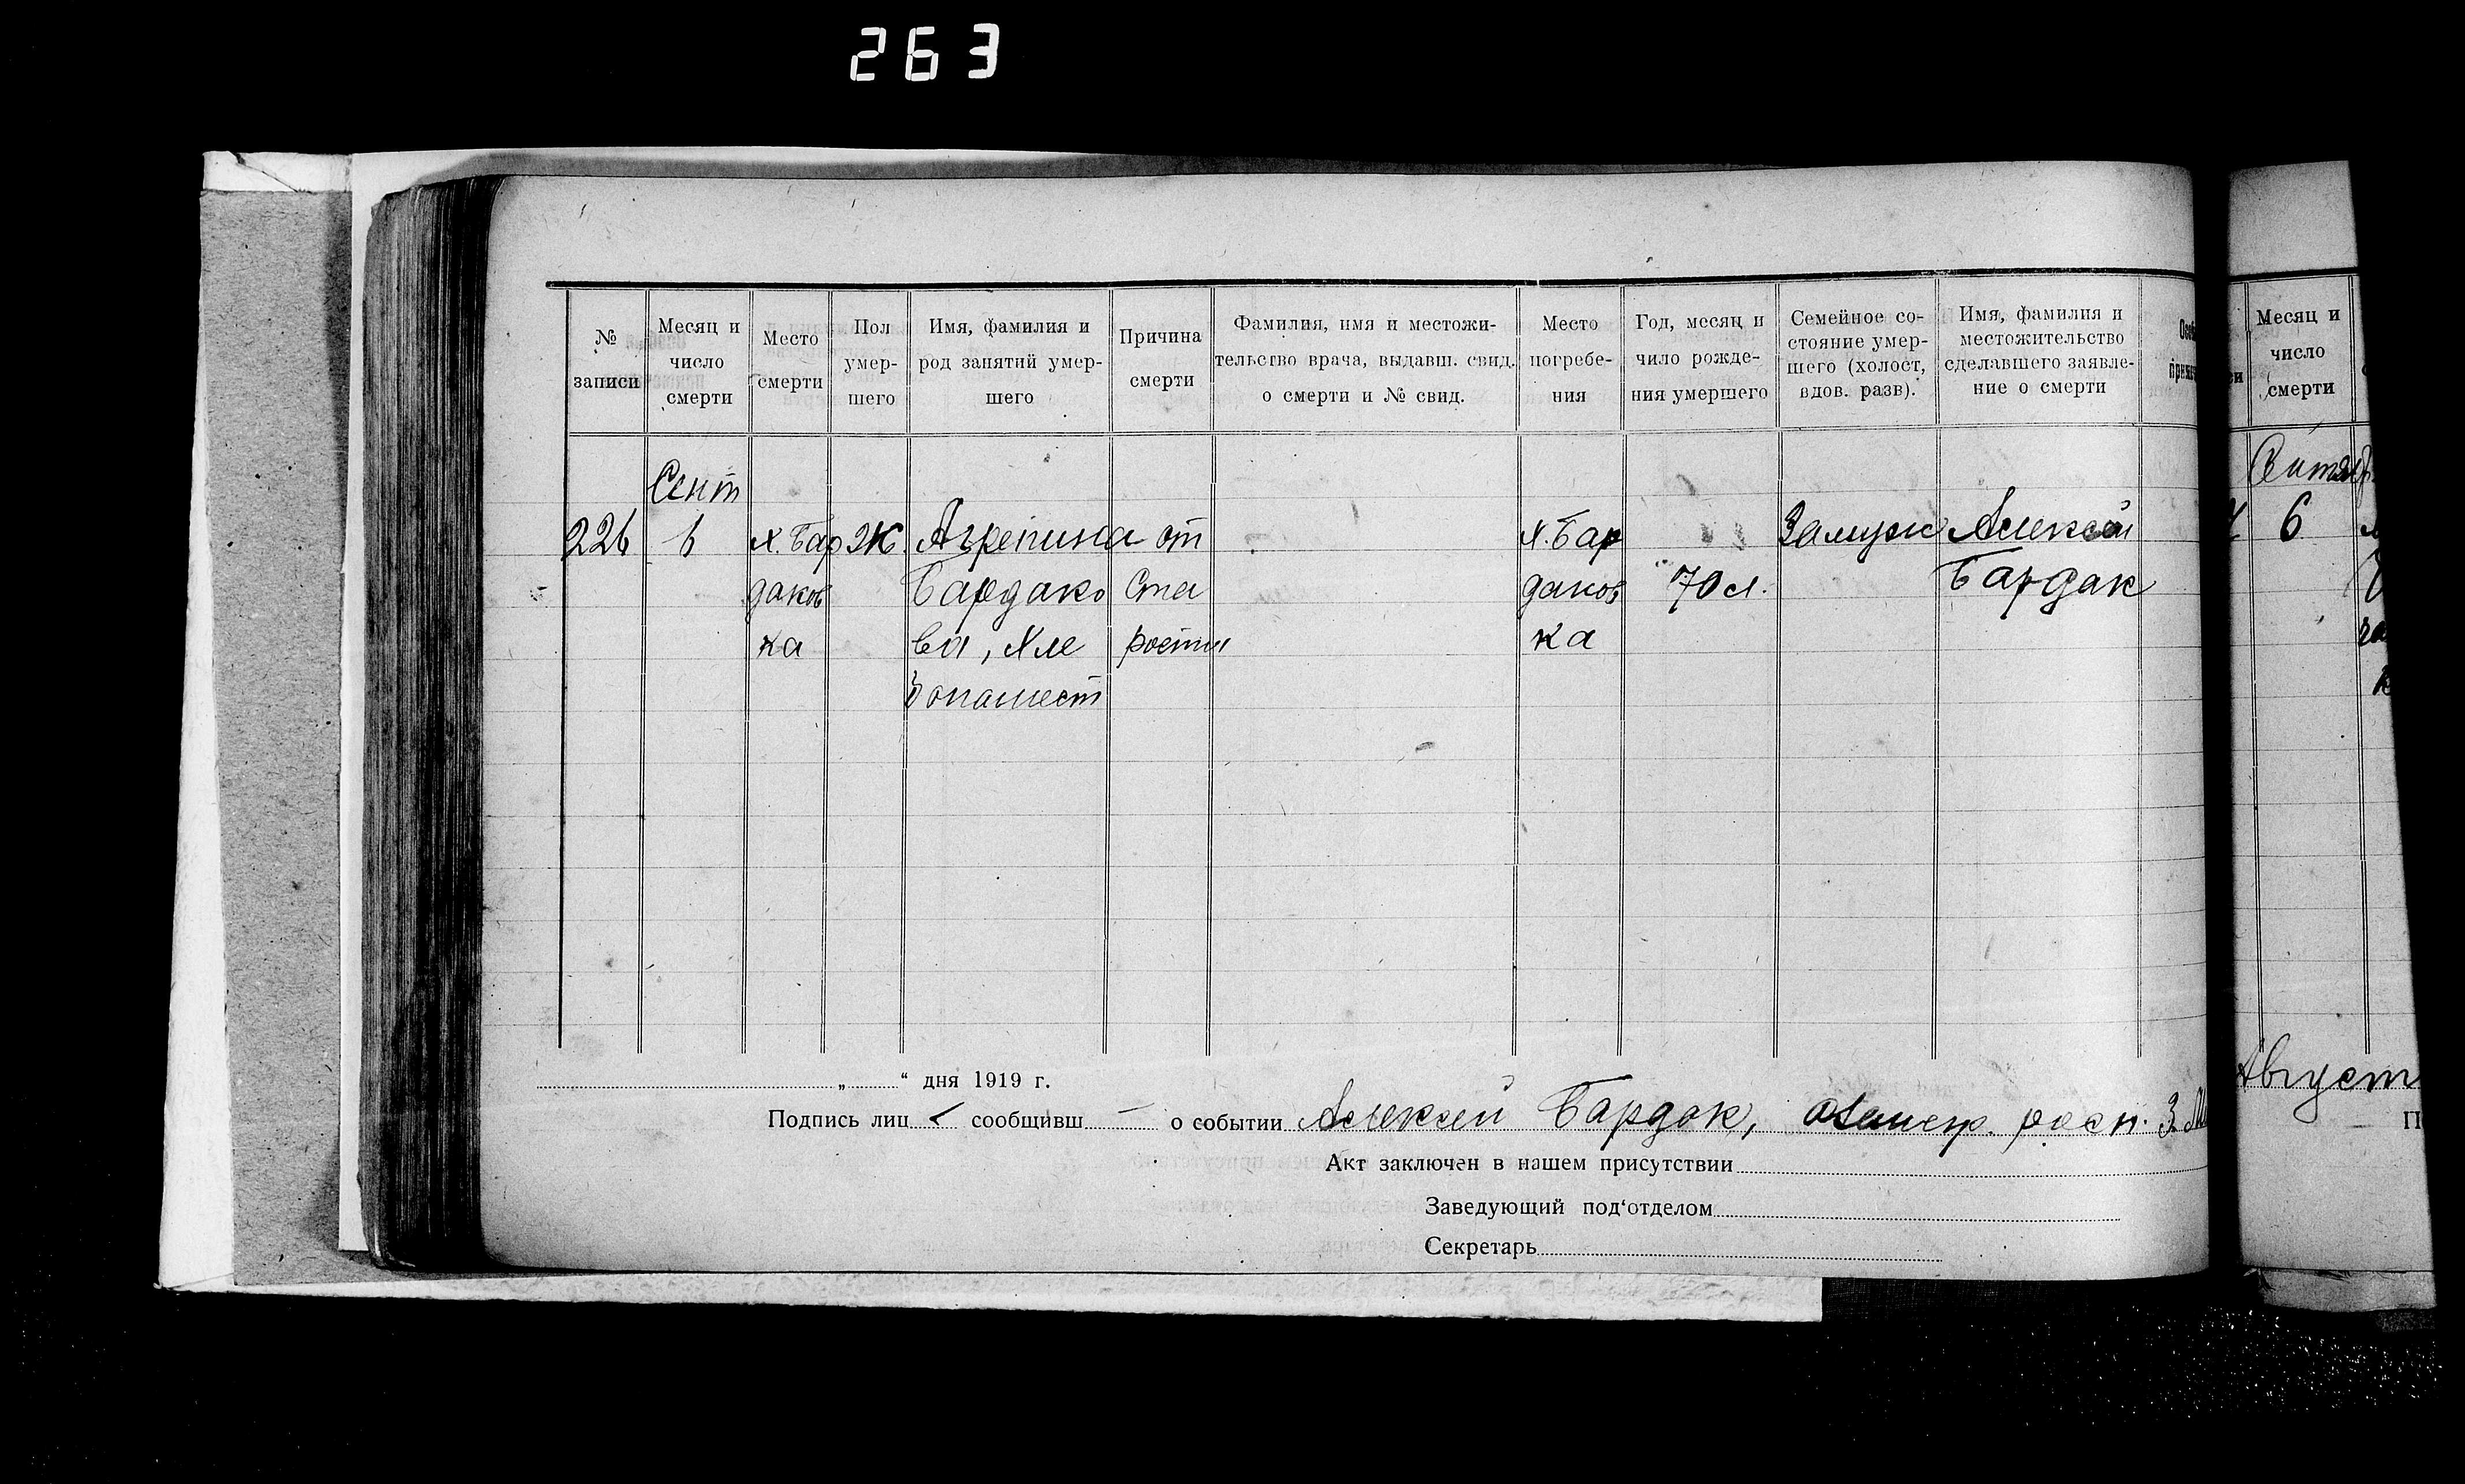 263
№ записи
Месяц и число смерти
Место смерти
Пол умер-шего
Имя, фамилия и род занятий умер-шего
Причина смерти
Фамилия, имя и местожи-тельство врача, выдавш. свид. о смерти и № свид.
Место погребе-ния
Год, месяц и чило рожде-ния умершего
Семейное со-стояние умер-шего (холост, вдов. разв).
Имя, фамилия и местожительство сделавшего заявле-ние о смерти
Сент
226 6 х. Бар Ж. Агрепина от х. Бар Замуж Алексей
даков Бардако Ста даков 70 л. Бардак
ка ва, хле рости ка
бопашест
„ “ дня 1919 г.
Подпись лиц сообщивш о событии Алексей Бардак,
Акт заключен в нашем присутствии
Заведующий под‘отделом
Секретарь
Месяц и число смерти
6
Август